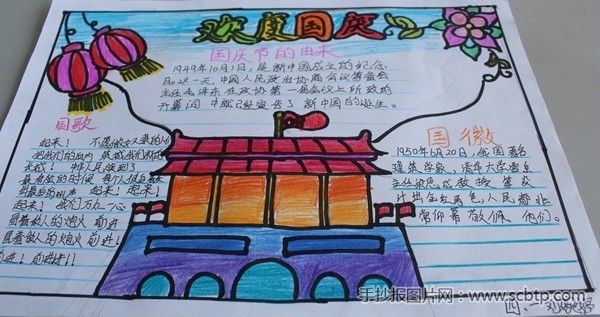 欢度国庆
国庆节的由来
1949年10月1日,是新中国成立的纪念
日。这一天,中国人民政治协商会议筹备会
主任毛泽东在政协第一届会议上所致的
开幕词中就已经宣告了新中国的诞生。
国歌
起来! 不愿做奴隶的人
把我们的血肉 筑成我们新的
长城! 中华人民族到了
最危险的时候 每个人被迫着
发出最后的吼声 起来!起来!
起来! 我们万众一心
冒着敌人的炮火 前进
冒着敌人的炮火 前进!
前进!前进进!!
国徽
1950年6月20日,我国著名
建筑学家,清华大学建筑
主任梁思成教授 等设
计出金红两色,人民都非
常仰慕敬佩 他们。
手抄报图片网:www.scbtp.com
四、一